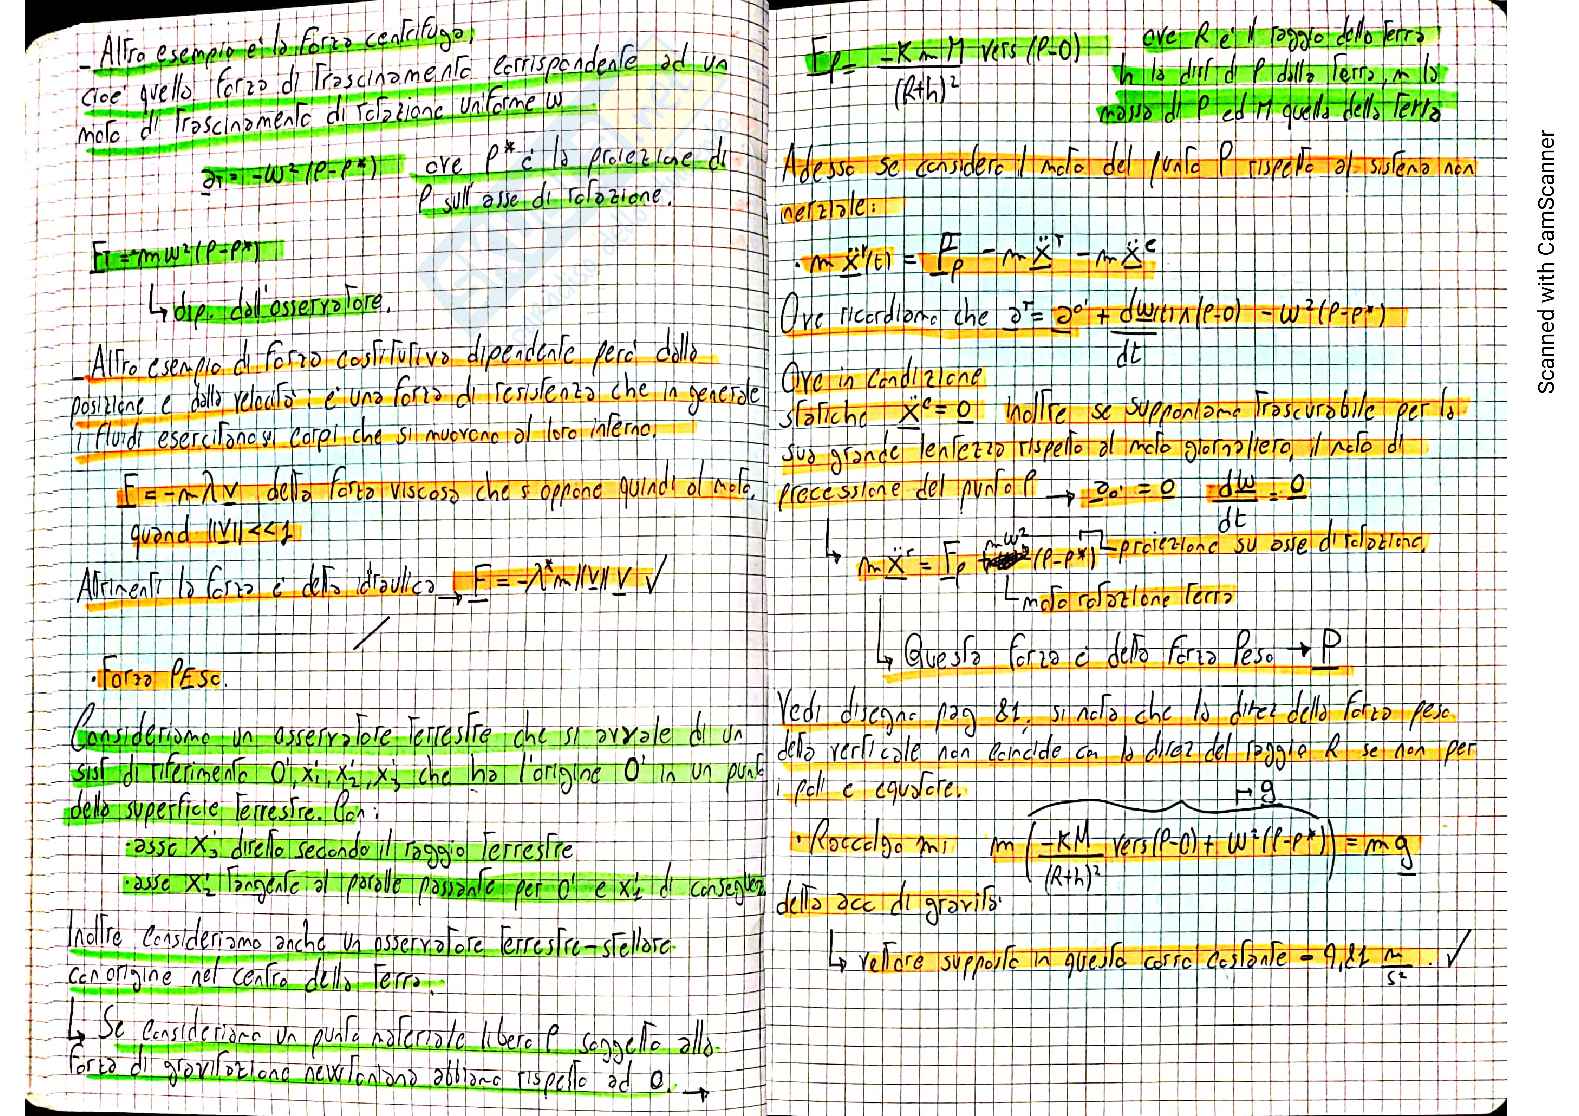 - Altro esempio è la forza centrifuga,
cioè quella forza di trascinamento corrispondente ad un
moto di trascinamento di rotazione uniforme ω
a_T = -ω²(P-P*) ove P* è la proiezione di
P sull'asse di rotazione.
F_T = mω²(P-P*)
↳ dip. dall'osservatore.
- Altro esempio di forza costitutiva dipendente però dalla
posizione e dalla velocità: è una forza di resistenza che in generale
i fluidi esercitano sui corpi che si muovono al loro interno.
F = -mλv detta forza viscosa che s'oppone quindi al moto,
quand ||v||<<1
Altrimenti la forza è detta idraulica → F = -λ*m||v||v ✓
• Forza PEso.
Consideriamo un osservatore terrestre che si avvale di un
sist di riferimento O', x'1, x'2, x'3 che ha l'origine O' in un punto
della superficie terrestre. Con:
• asse x'3 diretto secondo il raggio terrestre
• asse x'2 tangente al parallelo passante per O' e x'1 di conseguenza
Inoltre consideriamo anche un osservatore terrestre-stellare
con origine nel centro della terra.
↳ Se consideriamo un punto materiale libero P soggetto alla
forza di gravitazione newtoniana abbiamo rispetto ad O. →
F_P = -KmM/(R+h)² vers (P-O) ove R è il raggio della terra
h la dist di P dalla terra, m la
massa di P ed M quella della terra
Adesso se considero il moto del punto P rispetto al sistema non
inerziale:
• mẍ'(t) = F_P - mẍ^τ - mẍ^c
Ove ricordiamo che a^τ = a_o' + dω/dt(t) ∧ (P-O) - ω²(P-P*)
Ove in condizione
statiche ẍ^c = 0 Inoltre se supponiamo trascurabile per la
sua grande lentezza rispetto al moto giornaliero, il moto di
precessione del punto P → a_o' = 0 dω/dt = 0
↳ mẍ^r = F_P + mω²(P-P*) proiezione su asse di rotazione.
moto rotazione terra
↳ Questa forza è detta forza Peso → P
Vedi disegno pag 81, si nota che la direz della forza peso
detta verticale non coincide con la direz del raggio R se non per
i poli e equatore.
g
• Raccolgo m: m(-KM/(R+h)² vers(P-O) + ω²(P-P*)) = mg
detta acc di gravità.
↳ vettore supposto in questo corso costante = 9,81 m/s². ✓
Scanned with CamScanner